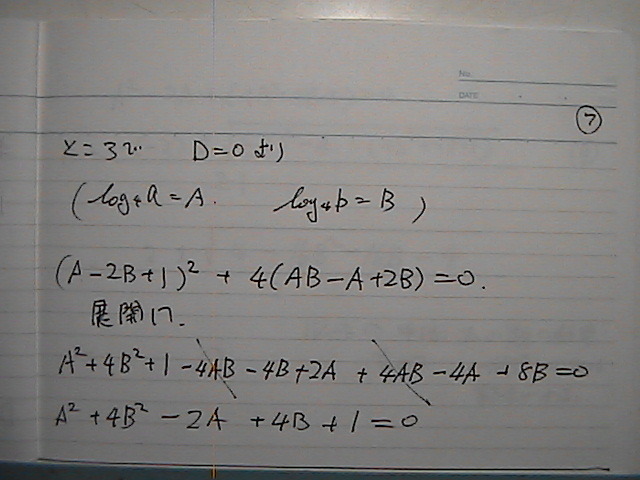 No.
DATE
⑦
x=3で D=0より
(log₄a=A. log₄b=B)
(A-2B+1)² + 4(AB-A+2B)=0.
展開して.
A²+4B²+1-4AB-4B+2A+4AB-4A+8B=0
A²+4B²-2A+4B+1=0